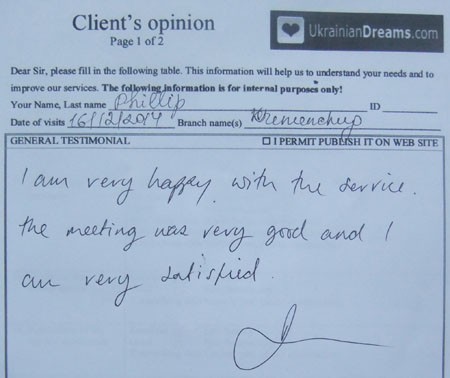 Client's opinion
Page 1 of 2
UkrainianDreams.com
Dear Sir, please fill in the following table. This information will help us to understand your needs and to
improve our services. The following information is for internal purposes only!
Your Name, Last name Phillip ID
Date of visits 16/12/2014 Branch name(s) Kremenchug
GENERAL TESTIMONIAL ☐ I PERMIT PUBLISH IT ON WEB SITE
I am very happy with the service.
the meeting was very good and I
am very satisfied.